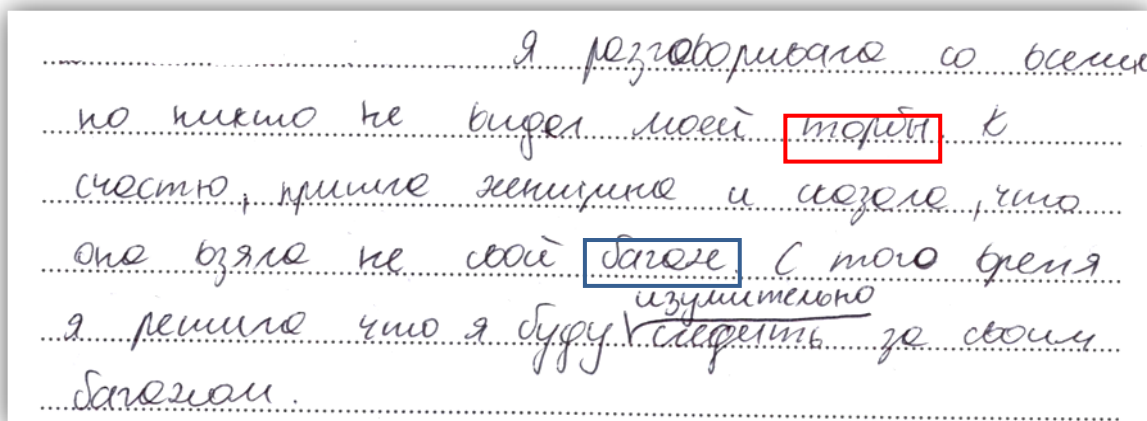 Я разговоривала со всеми
но никто не видел моей торбы. К
счастю, пришла женщина и сказала, что
она взяла не свой багаж. С того время
изумительно
я решила что я буду следить за своим
багажом.